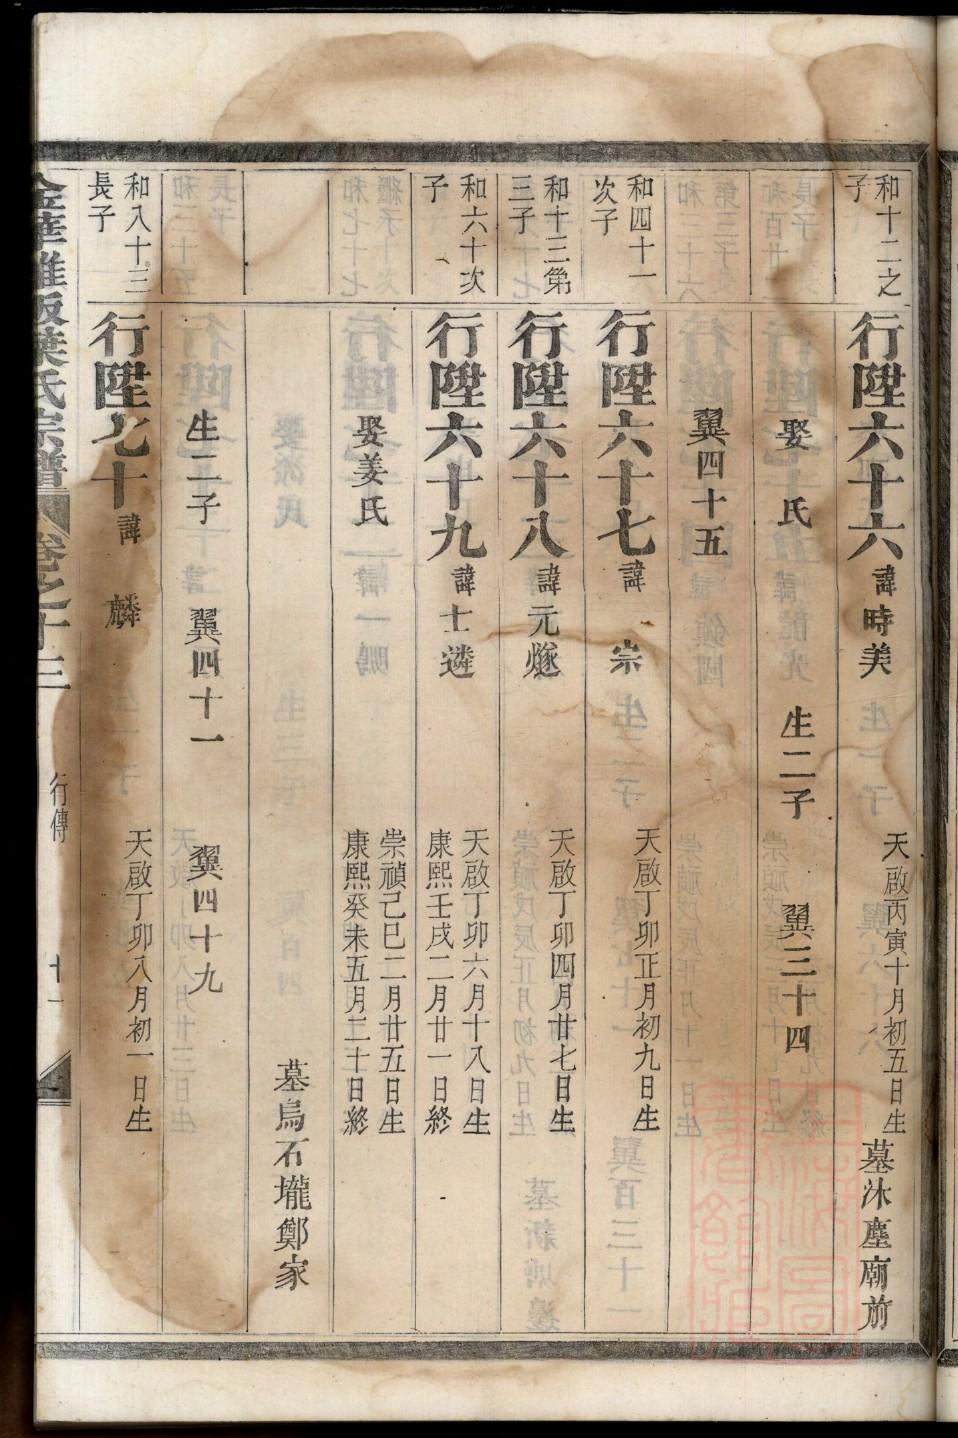 和十二之
子
行陞六十六諱時美
天啟丙寅十月初五日生
墓沐塵廟前
娶 氏 生二子 翼三十四
翼四十五
和四十一
次子
行陞六十七諱 宗
天啟丁卯正月初九日生
和十三第
三子
行陞六十八諱元燧
天啟丁卯四月廿七日生
和六十次
子
行陞六十九諱士遴
天啟丁卯六月十八日生
康熙壬戌二月廿一日終
娶姜氏
崇禎己巳二月廿五日生
康熙癸未五月二十日終
墓烏石壠鄭家
生二子 翼四十一 翼四十九
和八十三
長子
行陞七十諱 麟
天啟丁卯八月初一日生
葉氏宗譜
卷之十三
行傳